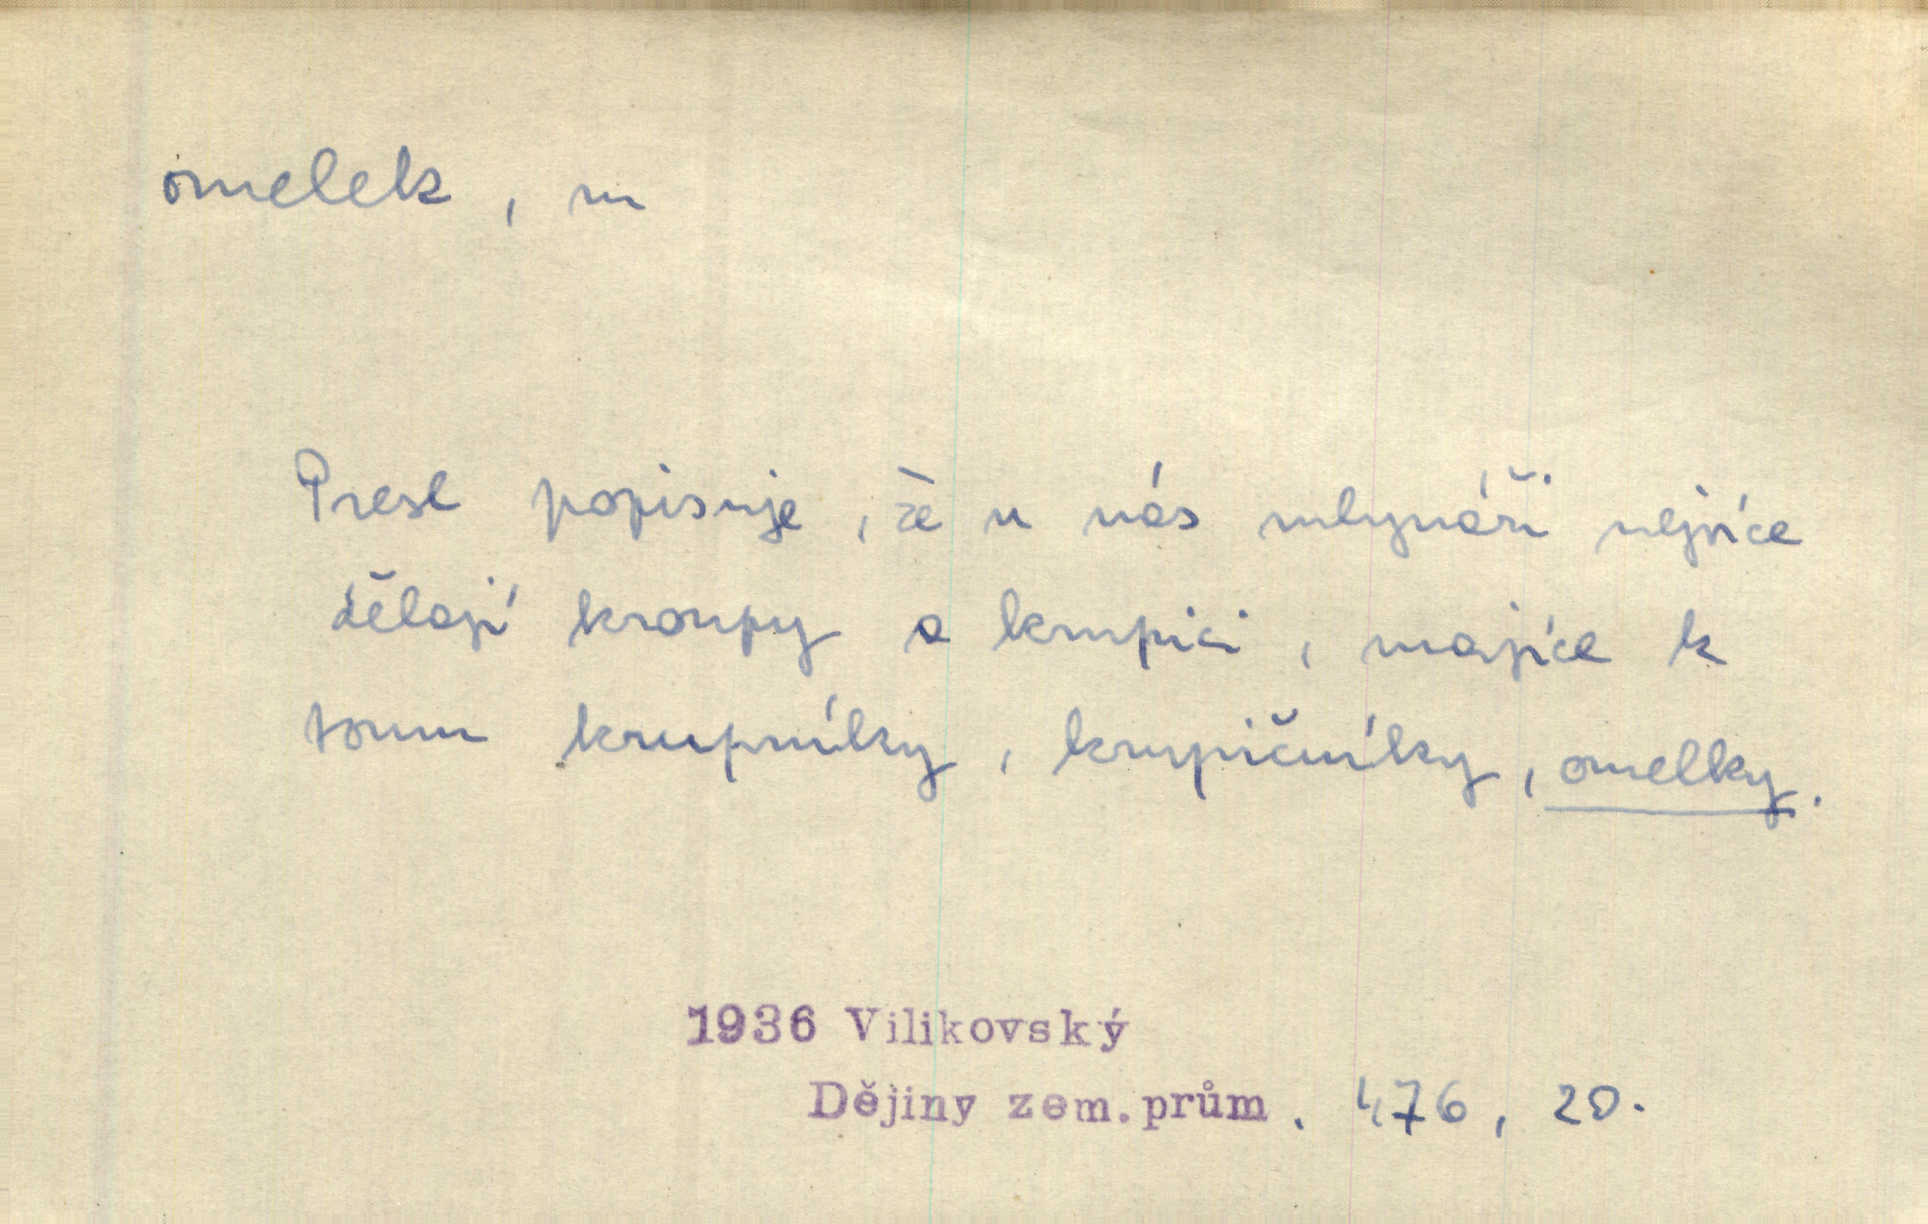 omelek, m
Presl popisuje, že u nás mlynáři nejvíce
dělají kroupy a krupici, majíce k
tomu krupníky, krupičníky, omelky.
1936 Vilikovský
Dějiny zem.prům. 476, 20.